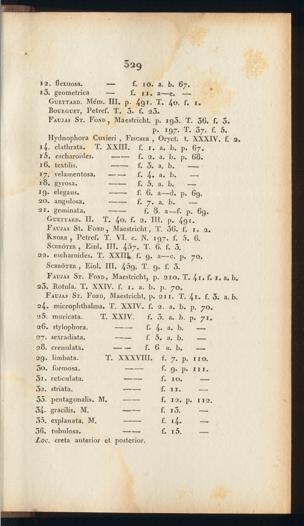 329
12. flexuosa. — f. 10. a. b. 67.
13. geometrica — f. 11. a—e. —
Guettard. Mém. III. p. 491. T. 40. f. 1.
Bourguet, Petref. T. 3. f. 23.
Faujas St. Fond, Maestricht. p. 193. T. 36. f. 3.
p. 197. T. 37. f. 5.
Hydnophora Cuvieri, Fischer, Oryct. t. XXXIV. f. 2.
14. clathrata. T. XXIII. f. 1. a. b. p. 67.
15. escharoides. —— f. 2. a. b. p. 68.
16. textilis. —— f. 3. a. b. —
17. velamentosa. —— f. 4. a. b. —
18. gyrosa. —— f. 5. a. b. —
19. elegans. —— f. 6. a—d. p. 69.
20. angulosa. —— f. 7. a. b. —
21. geminata. —— f. 8. a—f. p. 69.
Guettard. II. T. 40. f. 2. III. p. 491.
Faujas St. Fond, Maestricht, T. 36. f. 1. 2.
Knorr, Petref. T. VI. c. N. 197. f. 5. 6.
Schröter, Einl. III. 457. T. 6. f. 3.
22. escharoides. T. XXIII. f. 9. a—c. p. 70.
Schröter, Einl. III. 459. T. 9. f. 3.
Faujas St. Fond, Maestricht, p. 210. T. 41. f. 1. a. b.
23. Rotula. T. XXIV. f. 1. a. b. p. 70.
Faujas St. Fond, Maestricht, p. 211. T. 41. f. 3. a. b.
24. microphthalma. T. XXIV. f. 2. a. b. p. 70.
25. muricata. T. XXIV. f. 3. a. b. p. 71.
26. stylophora. —— f. 4. a. b. —
27. sexradiata. —— f. 5. a. b. —
28. crenulata. —— f. 6 a. b. —
29. limbata. T. XXXVIII. f. 7. p. 110.
30. formosa. —— f. 9. p. 111.
31. reticulata. —— f. 10. —
32. striata. —— f. 11. —
33. pentagonalis. M. —— f. 12. p. 112.
34. gracilis. M. —— f. 13. —
35. explanata, M. —— f. 14. —
36. tubulosa. —— f. 15. —
Loc. creta anterior et posterior.